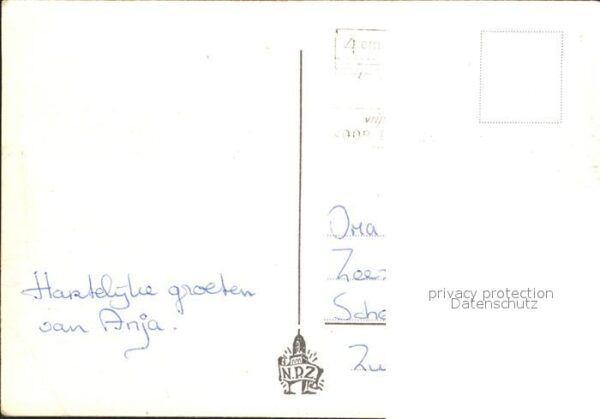 Hartelijke groeten
van Anja.
N.P.Z
Oma
Zee
Sche
Zu
privacy protection
Datenschutz